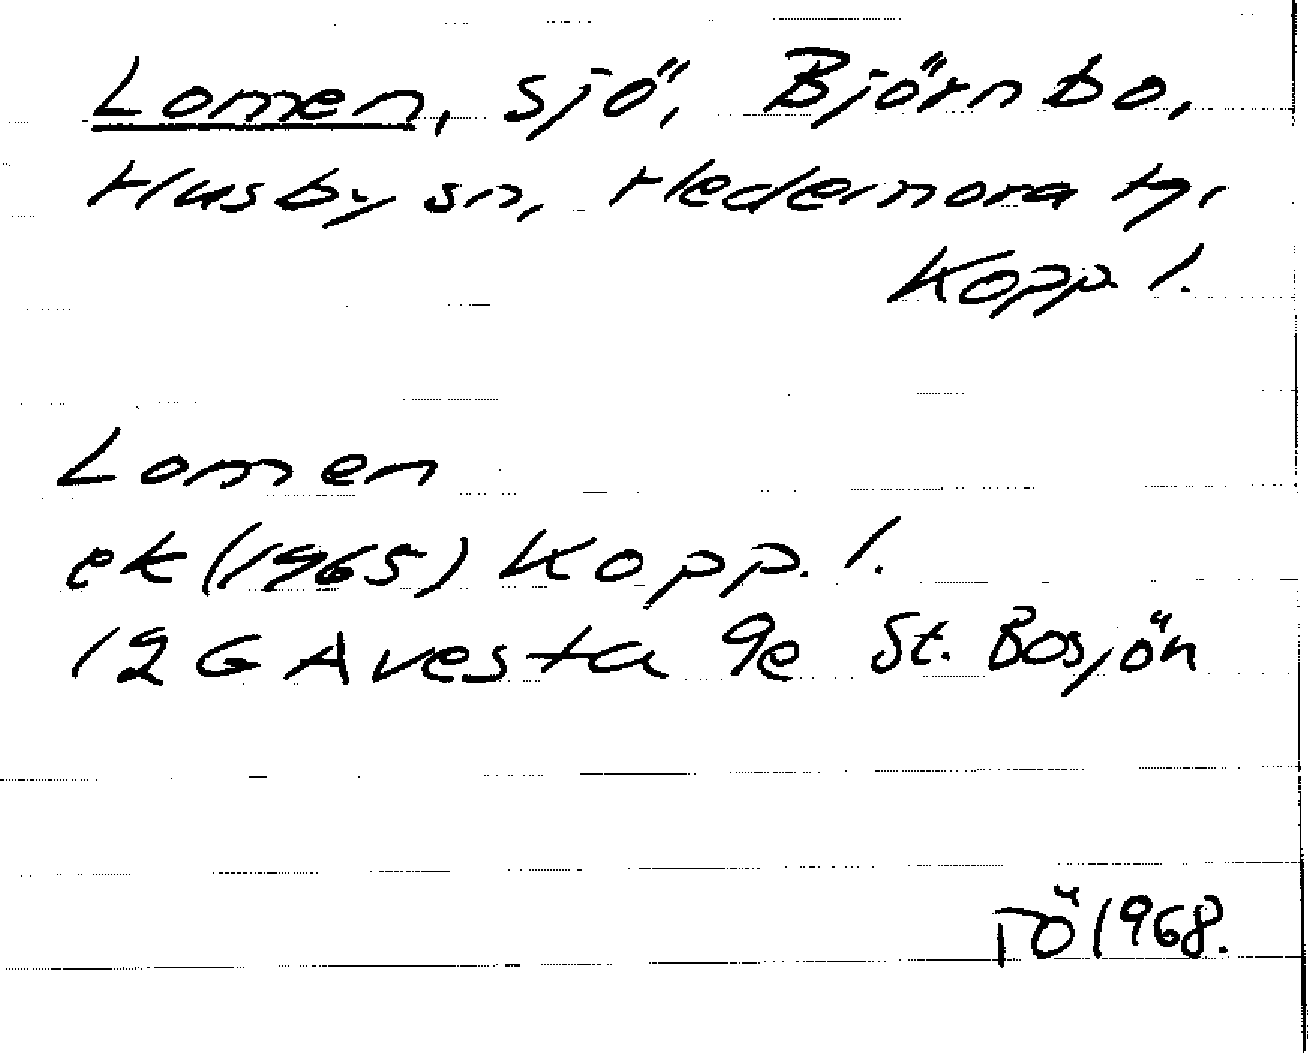 Lomen, sjö, Björnbo,
Husby sn, Hedemora tg,
Kopp. l.
Lomen
ek (1965) Kopp. l.
12 G Avesta 9e St. Bosjön
TÖ 1968.